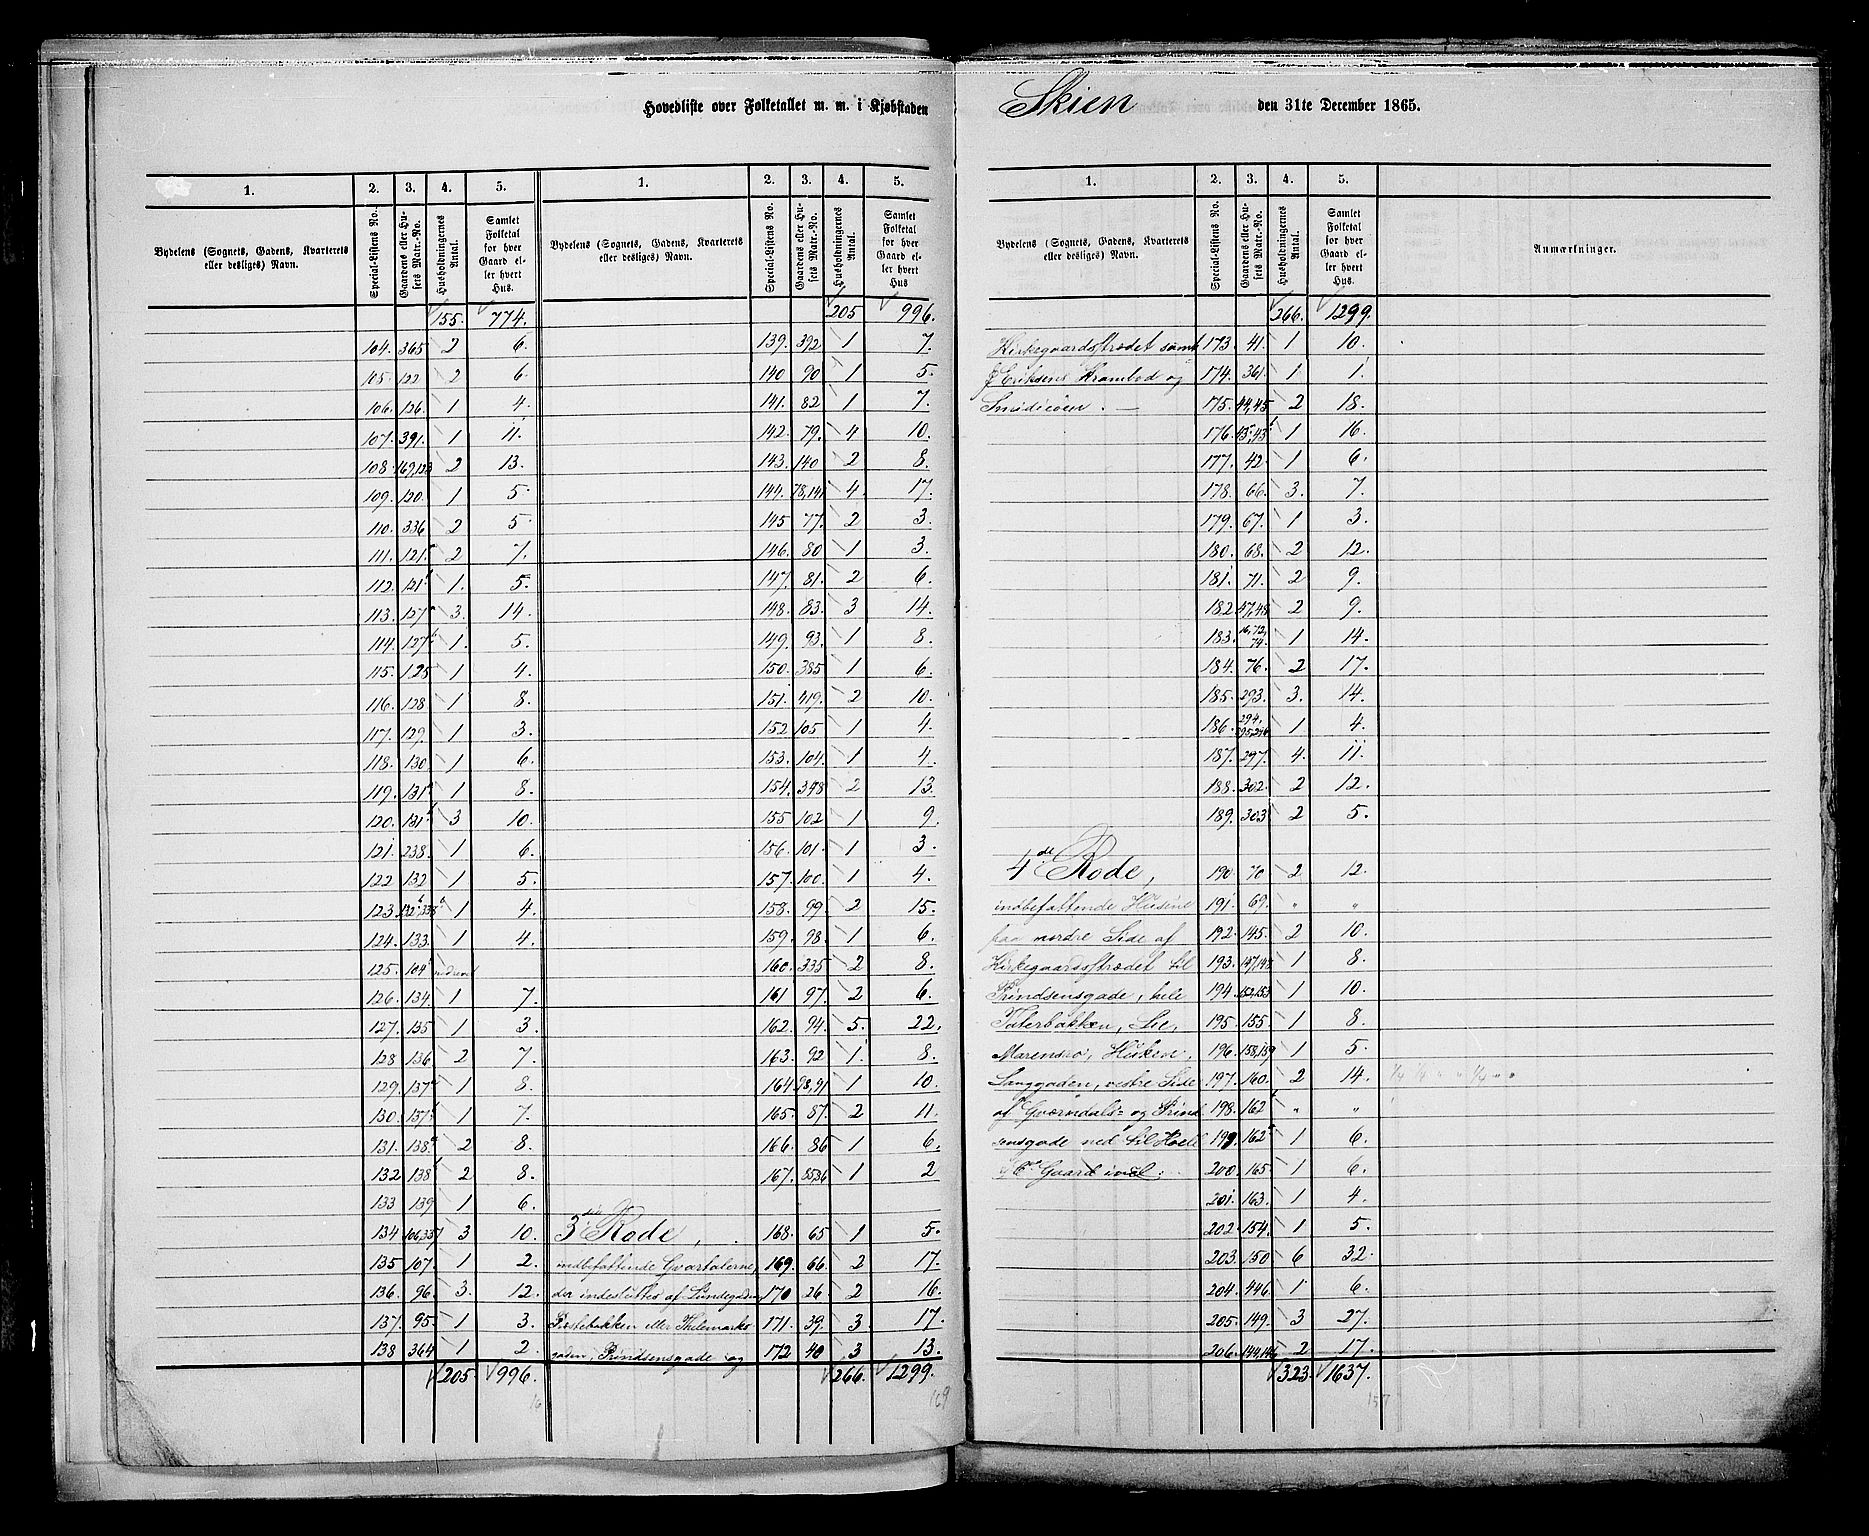 Hovedliste over Folketallet m. m. i Kjøbstaden Skien den 31te December 1865.
1. 2. 3. 4. 5.
Bydelens (Sognets, Gadens, Kvarterets eller desliges) Navn. Special-Listens No. Gaardens eller Husets Matr.-No. Husholdningernes Antal. Samlet Folketal for hver Gaard eller hvert Hus.
155. 774.
104. 365 2 6.
105. 122 2 6.
106. 126. 1 4.
107. 391. 1 11.
108. 169,123 2 13.
109. 120. 1 5.
110. 336 2 5.
111. 121.a 2 7.
112. 121b 1. 5.
113. 127a 3. 14.
114. 127b 1. 5.
115. 125 1 4.
116. 128 1 8.
117. 129. 1 3.
118. 130 1 6.
119. 131a 1 8.
120. 131b 3 10.
121. 238. 1 6.
122 132 1 5.
123. 132b,338a 1 4.
124. 133. 1 4.
125. 104b
126. 134 1 7.
127. 135 1 3.
128 136 2 7.
129. 137a 1 8.
130. 137b 1 7.
131. 138a 2 8.
132 138b 2 8.
133 139 1 6.
134 106,337 3 10.
135 107. 1 2.
136. 96. 3. 12.
137. 95. 1 3.
138 364 1 2.
205. 996.
1. 2. 3. 4. 5.
Bydelens (Sognets, Gadens, Kvarterets eller desliges) Navn. Special-Listens No. Gaardens eller Husets Matr.-No. Husholdningernes Antal. Samlet Folketal for hver Gaard eller hvert Hus.
205 996.
139. 392 1 7.
140 90 1 5.
141. 82 1 7.
142. 79. 4 10.
143. 140 2 8.
144. 78,141 4 17.
145 77. 2 3.
146. 80 1 3.
147. 81. 2 6.
148. 83. 3 14.
149. 93. 1 8.
150. 385 1 6.
151. 419. 2 10.
152 105 1 4.
153. 104. 1 4.
154. 348 2 13.
155 102 1 9.
156. 101. 1 3.
157. 100. 1 4.
158. 99 2 15.
159. 98. 1 6.
160. 335 2 8.
161 97. 2 6.
162. 94. 5. 22.
163. 92 1. 8.
164 98,91 1 10.
165. 87. 2 11.
166. 86 1 6.
167. 85,36 1 2
3die Rode, 168. 65 1 5.
indbefattende Qvartalerne, 169. 66 2 17.
der indesluttes af Lundegaden, 170 26 2 16.
Præstebakken eller Thelemarks 171. 39. 3. 17.
gaden, Prindsensgade og 172 40 3 13.
266. 1299.
169
1. 2. 3. 4. 5.
Bydelens (Sognets, Gadens, Kvarterets eller desliges) Navn. Special-Listens No. Gaardens eller Husets Matr.-No. Husholdningernes Antal. Samlet Folketal for hver Gaard eller hvert Hus. Anmærkninger.
266. 1299.
Kirkegaardsstrædet samt 173. 41. 1 10.
Eriksens Krambod og 174. 361. 1 1.
Smidieøen. — 175. 44,45 2 18.
176. 45,43b 1 16.
177. 42 1 6.
178. 66. 3. 7.
179. 67. 1 3.
180. 68. 2 12.
181. 71. 2 9.
182 47,48 2 9.
183. 16,72,74. 1 14.
184. 76. 2 17.
185. 293. 3. 14.
186. 294, 295,296 1 4.
187. 297. 4. 11.
188. 302. 2 12.
189. 303 2 5.
4de Rode, 190. 70 2 12.
indbefattende Husene 191. 69. " "
paa nordre Side af 192. 145. 2 10.
Kirkegaardsstrædet til 193. 147,148 1 8.
Prindsensgade, hele 194. 152,153 1 10.
Taterbakken, Lie, 195. 155. 1 8.
Marensrø, Husken, 196. 158,159 1 5.
Langgaden, vestre Side 197. 160. 2 14.
af Qværndals- og Prind 198. 162a " "
sensgade ned til Hoell 199. 162b 1 6.
Gaard incl. 200. 165. 1 6.
201. 163. 1 4.
202. 154. 1 5.
203. 150 6 32.
204. 446. 1 6.
205. 149. 3 27.
206. 144,146 2 17.
323. 1637.
157